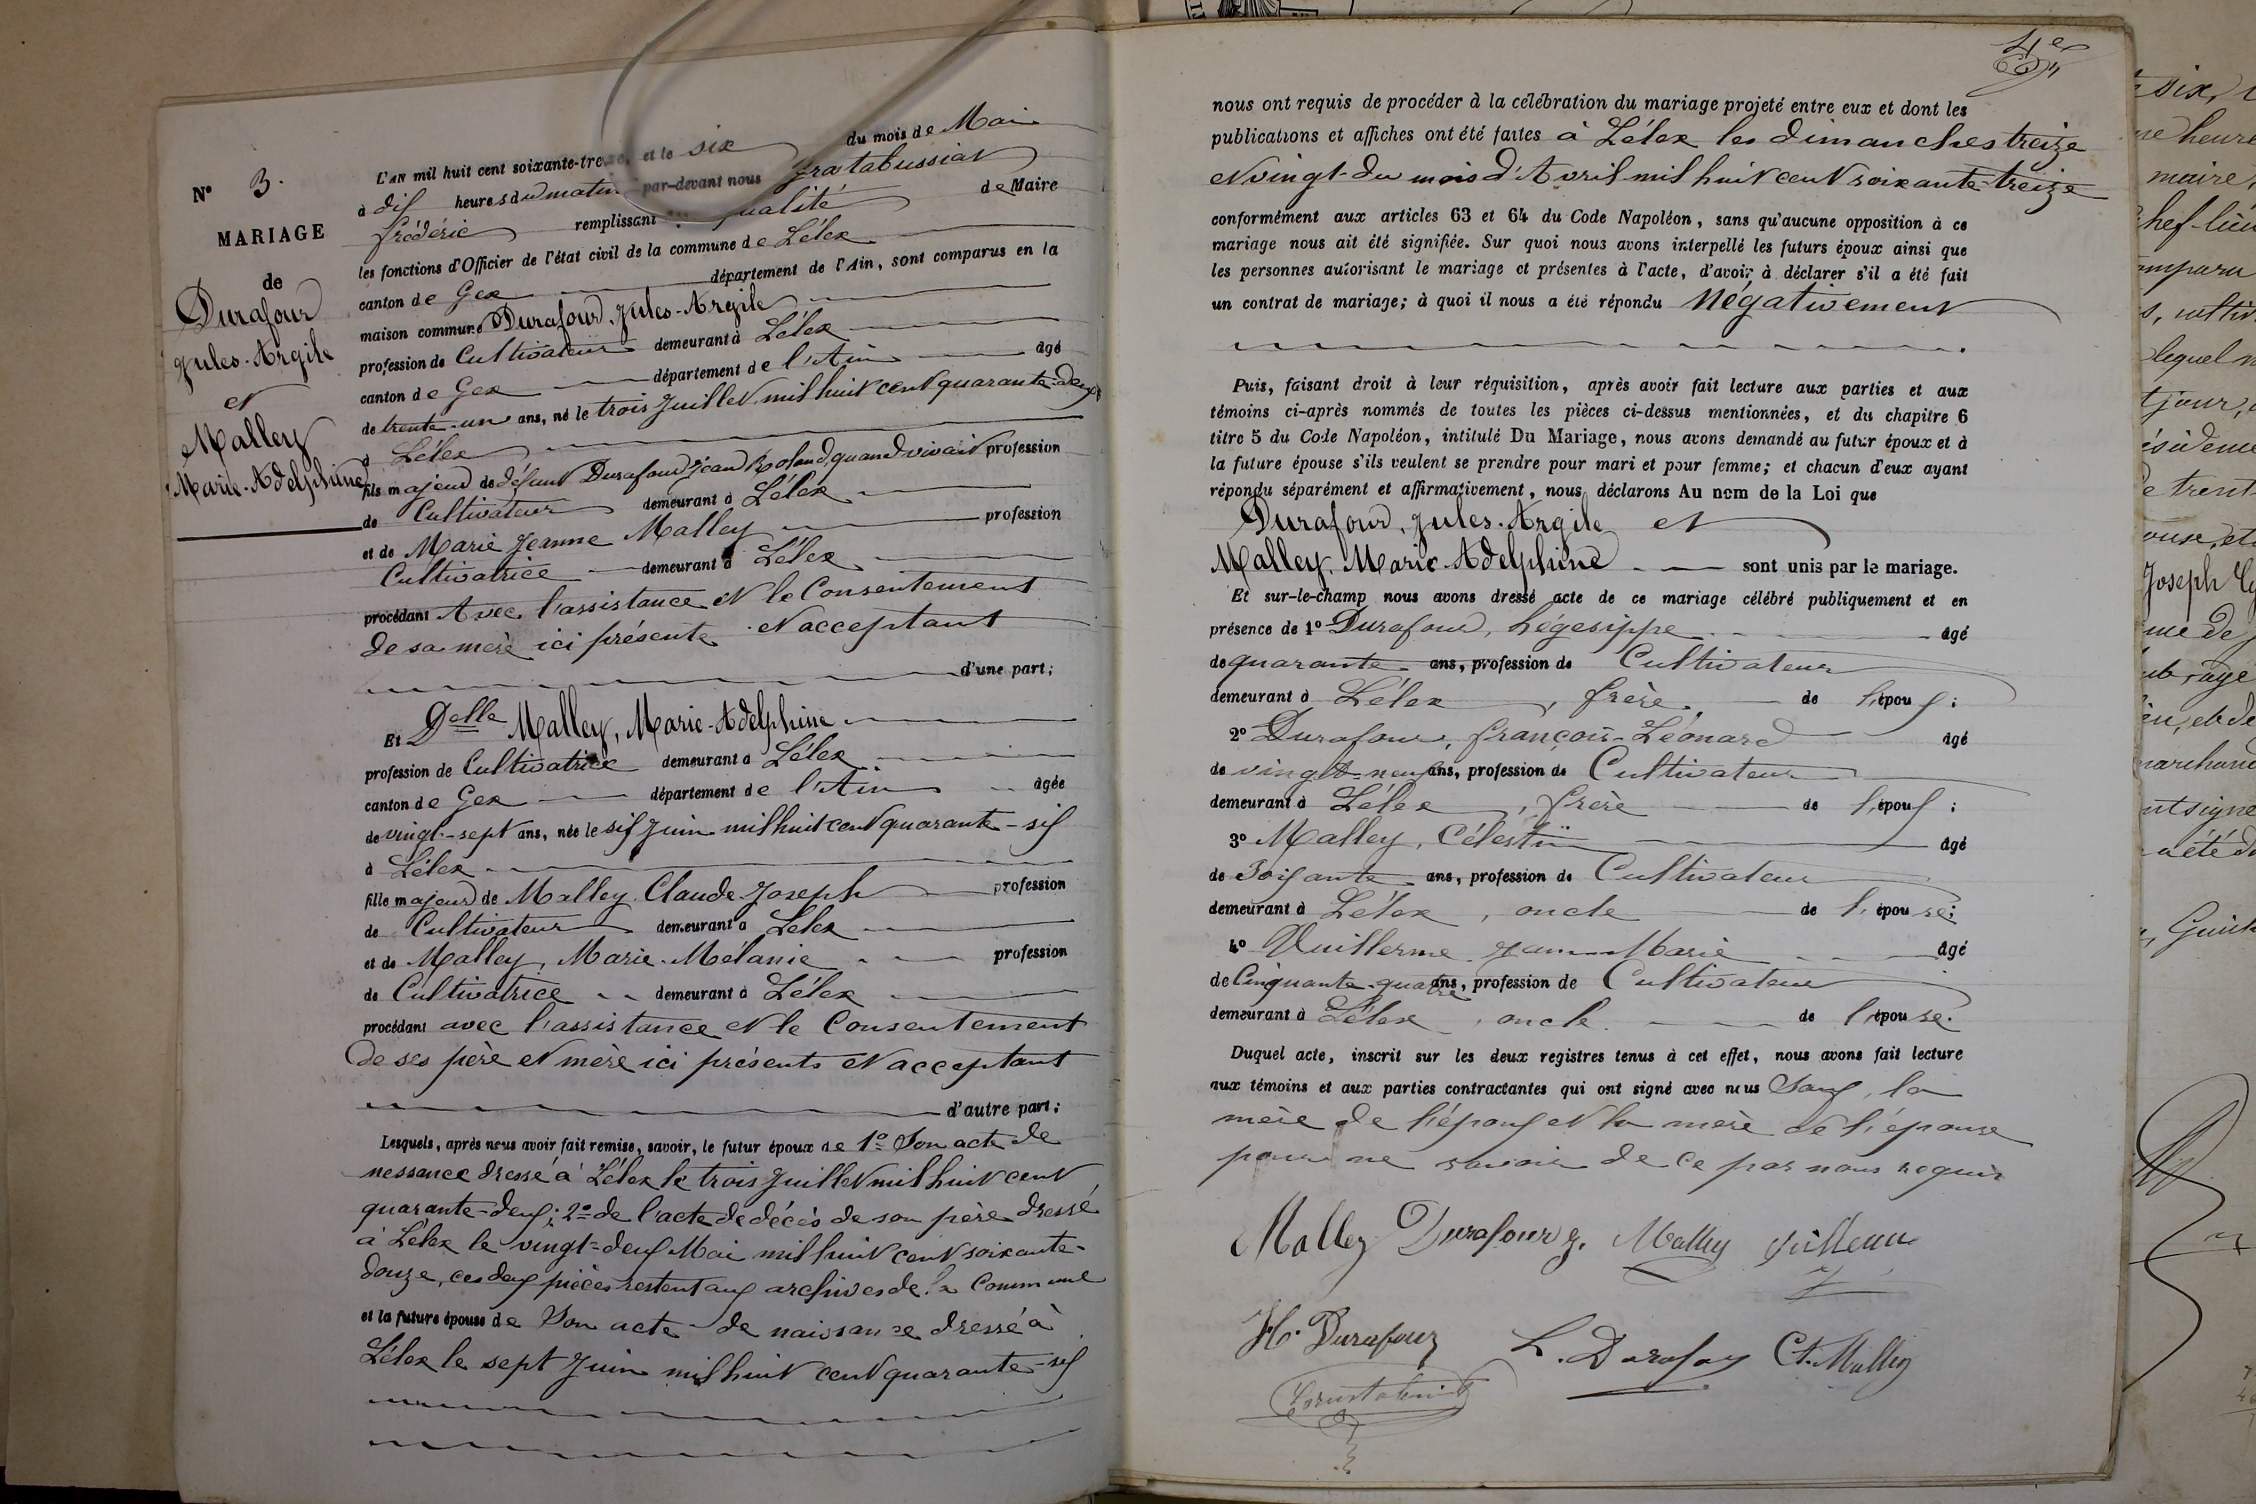 N° 3.
MARIAGE
de
Durafour
Jules-Argile
et
Malley
Marie-Adelphine
L'AN mil huit cent soixante-treize, et le six du mois de Mai
à dix heures du matin par-devant nous Grostabussiat
frédéric remplissant qualité de Maire
les fonctions d'Officier de l'état civil de la commune de Lélex
canton de Gex département de l'Ain, sont comparus en la
maison commune Durafour, Jules-Argile
profession de Cultivateur demeurant à Lélex
canton de Gex département de l'Ain âgé
de trente-un ans, né le trois Juillet mil huit cent quarante-deux
à Lélex
fils majeur de défunt Durafour Jean Roland, quand vivait profession
de Cultivateur demeurant à Lélex
et de Marie Jeanne Malley profession
Cultivatrice demeurant à Lélex
procédant Avec l'assistance et le Consentement
de sa mère ici présente et acceptant
d'une part;
Et Delle Malley, Marie-Adelphine
profession de Cultivatrice demeurant à Lélex
canton de Gex département de l'Ain âgée
de vingt-sept ans, née le six Juin mil huit cent quarante-six
à Lélex
fille majeur de Malley Claude Joseph profession
de Cultivateur demeurant à Lélex
et de Malley, Marie-Mélanie profession
de Cultivatrice demeurant à Lélex
procédant avec l'assistance et le Consentement
de ses père et mère ici présents et acceptant
d'autre part;
Lesquels, après nous avoir fait remise, savoir, le futur époux de 1° Son acte de
nessance dressé à Lélex le trois Juillet mil huit cent
quarante-deux; 2° de l'acte de décès de son père dressé
à Lélex le vingt-deux Mai mil huit cent soixante-
douze, ces deux pièces restent aux archives de la Commune
et la future épouse de Son acte de naissance dressé à
Lélex le sept Juin mil huit cent quarante-six
nous ont requis de procéder à la célébration du mariage projeté entre eux et dont les
publications et affiches ont été faites à Lélex les dimanches treize
et vingt du mois d'Avril mil huit cent soixante-treize
conformément aux articles 63 et 64 du Code Napoléon, sans qu'aucune opposition à ce
mariage nous ait été signifiée. Sur quoi nous avons interpellé les futurs époux ainsi que
les personnes autorisant le mariage et présentes à l'acte, d'avoir à déclarer s'il a été fait
un contrat de mariage; à quoi il nous a été répondu Négativement
Puis, faisant droit à leur réquisition, après avoir fait lecture aux parties et aux
témoins ci-après nommés de toutes les pièces ci-dessus mentionnées, et du chapitre 6
titre 5 du Code Napoléon, intitulé Du Mariage, nous avons demandé au futur époux et à
la future épouse s'ils veulent se prendre pour mari et pour femme; et chacun d'eux ayant
répondu séparément et affirmativement, nous déclarons Au nom de la Loi que
Durafour, Jules-Argile et
Malley, Marie-Adelphine sont unis par le mariage.
Et sur-le-champ nous avons dressé acte de ce mariage célébré publiquement et en
présence de 1° Durafour, hégesippe âgé
de quarante ans, profession de Cultivateur
demeurant à Lélex, frère de l'époux;
2° Durafour, françois-Léonard âgé
de vingt-neuf ans, profession de Cultivateur
demeurant à Lélex, frère de l'époux;
3° Malley, Célestin âgé
de Soixante ans, profession de Cultivateur
demeurant à Lélex, oncle de l'épouse;
4° Vuillerme Jean-Marie âgé
de Cinquante-quatre ans, profession de Cultivateur
demeurant à Lélex, oncle de l'épouse.
Duquel acte, inscrit sur les deux registres tenus à cet effet, nous avons fait lecture
aux témoins et aux parties contractantes qui ont signé avec nous Sauf, la
mère de l'époux et la mère de l'épouse
pour ne savoir de ce par nous requis
Malley Durafour J. Malley
H. Durafour L. Durafour Ct. Malley